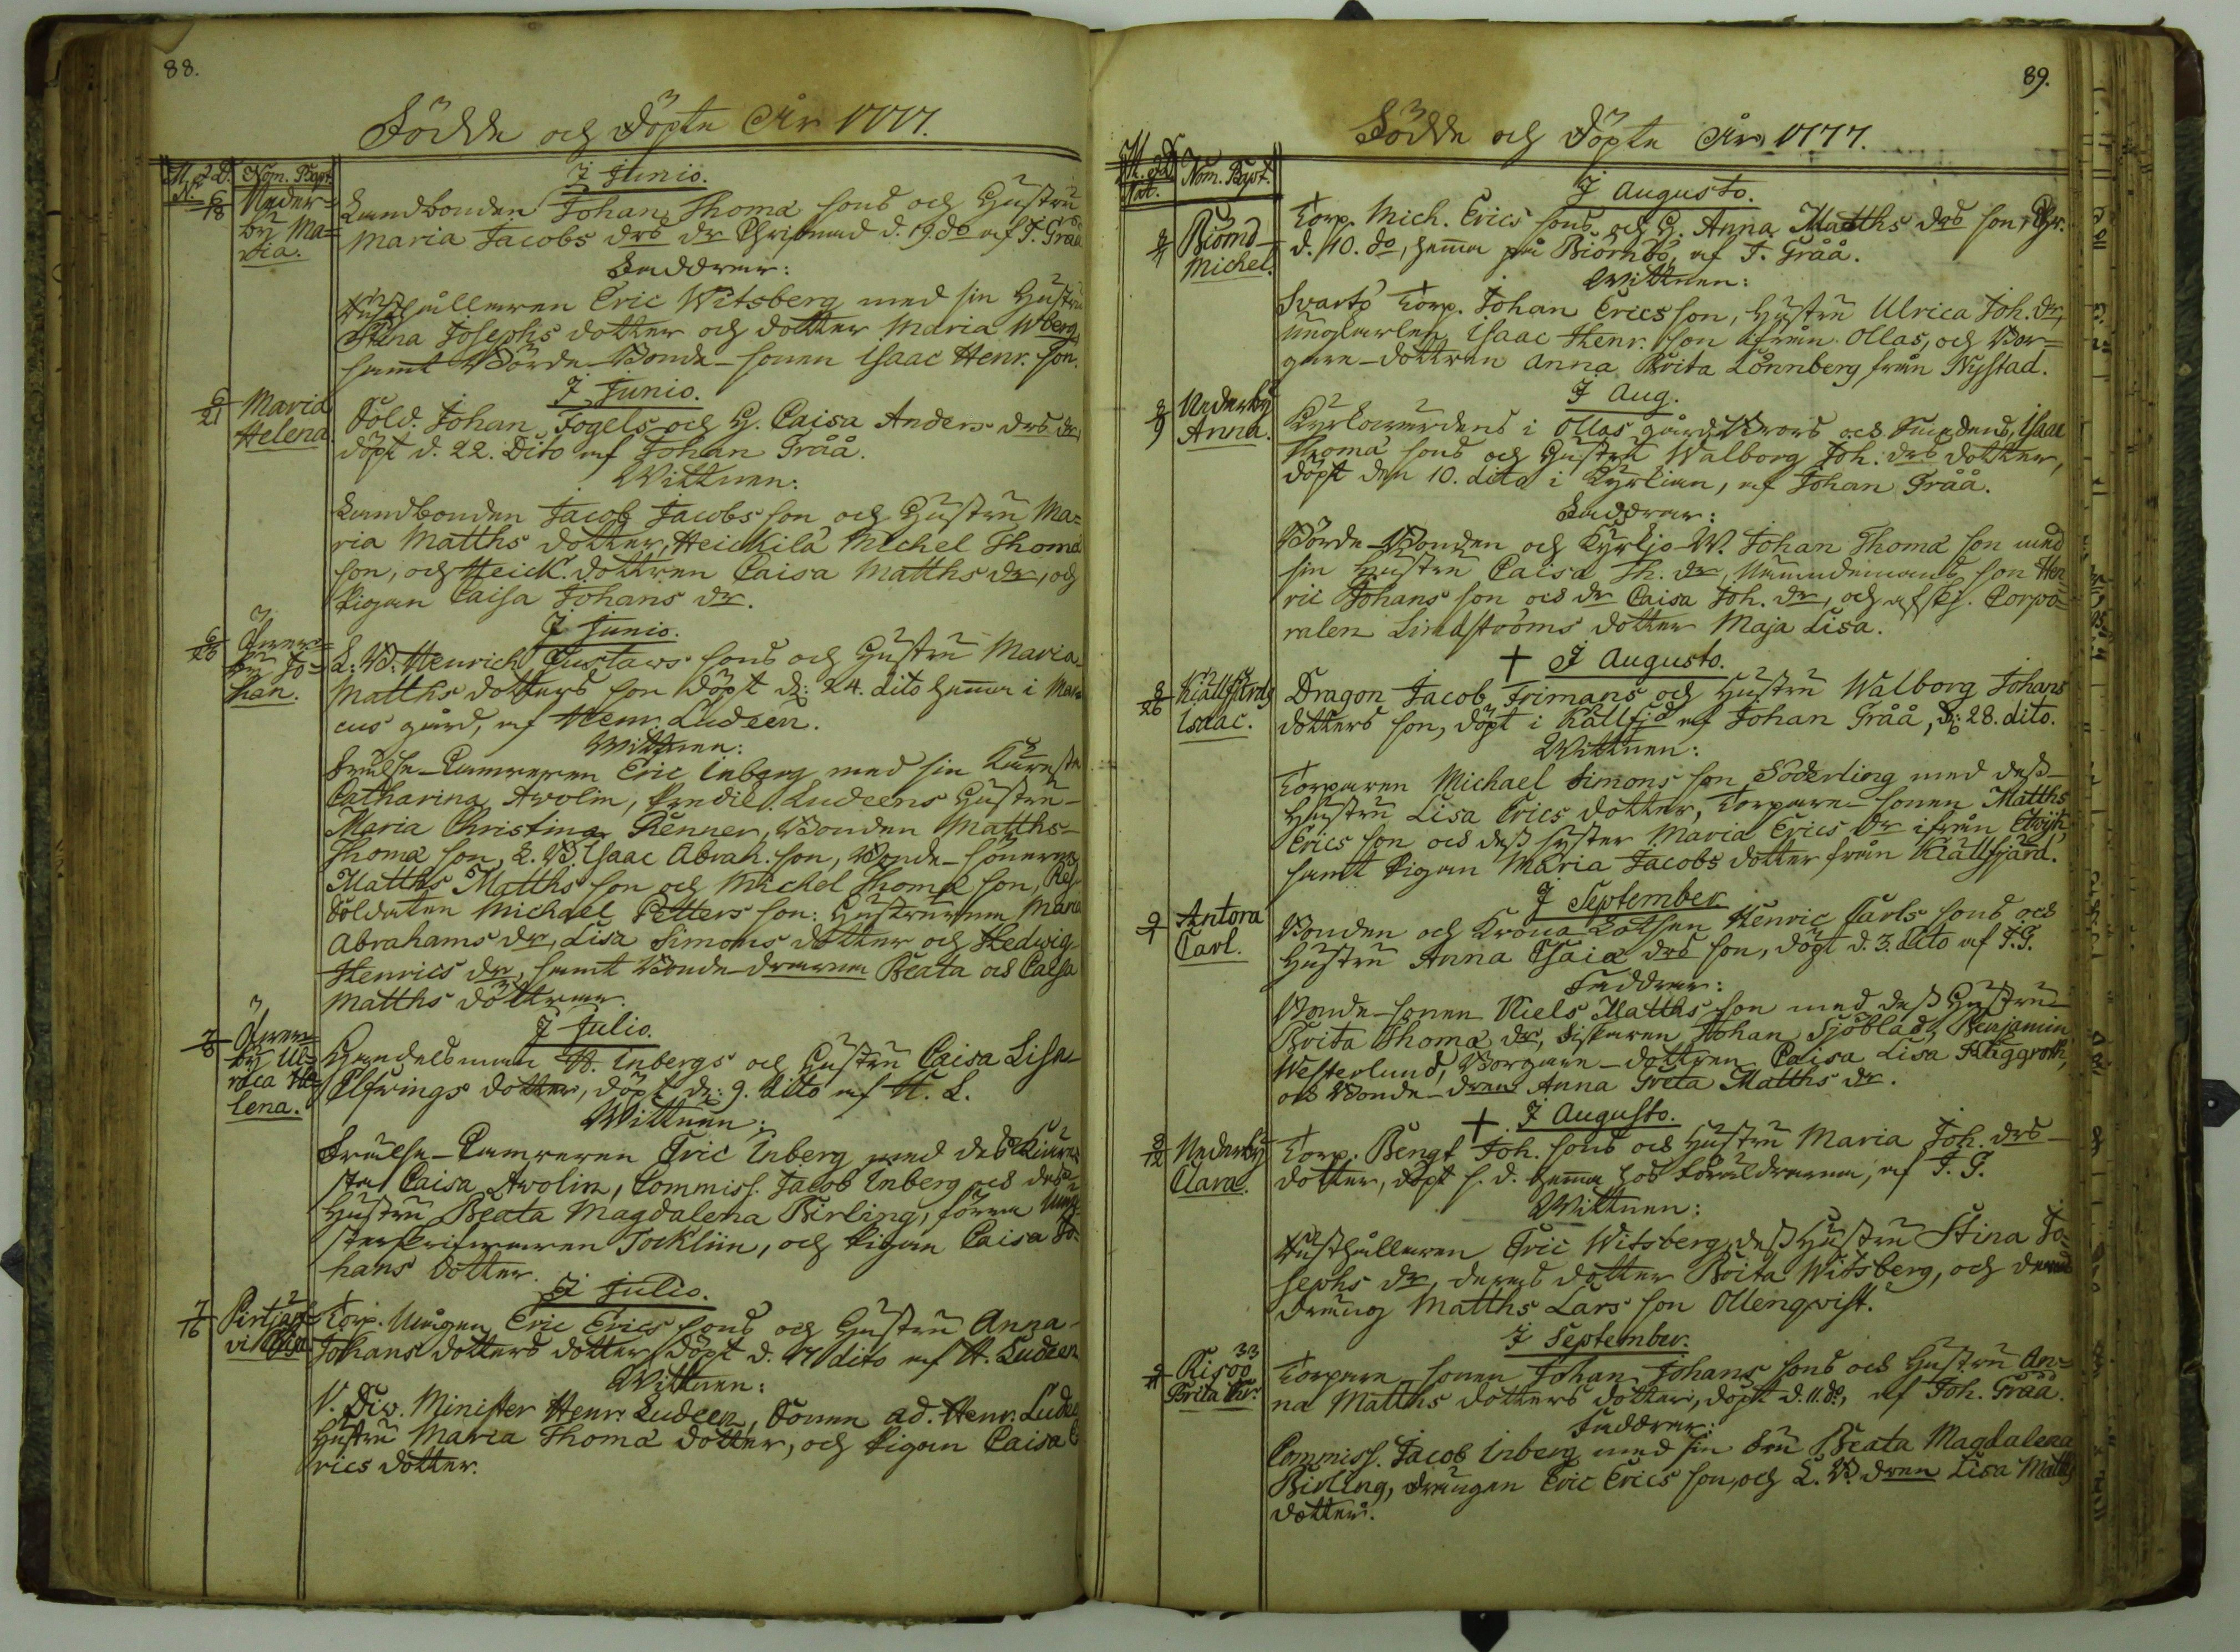 88.
Födde och Döpte År 1777.
M. & D. Nom. Bapt.
N.
I Junio.
6/18 Neder-
by Ma-
ria.
Landbonden Johan Thomæ sons och Hustru
Maria Jacobs drs dr Christnad d. 19 do af J. Gråå
Faddrar:
Husthållaren Eric Witsberg med sin Hustru
Stina Josephs dotter och dotter Maria Wberg
samt Börde-Bonde-sonen Isaac Henr. son.
I Junio.
6/21 Maria
Helena.
Sold. Johan Fogels och H. Caisa Anders drs dr
döpt d. 22. Dito af Johan Gråå.
Wittnen:
Landbonden Jacob Jacobs son och Hustru Ma-
ria Matths dotter, Heickilä Michel Thomæ
son, och Heick. dottren Caisa Matths dr, och
Pigan Caisa Johans dr.
I Junio.
Öfver-
by Jo-
han.
L. B. Henrich Gustavs sons och Hustru Maria
Matths dotters son döpt d: 24. dito hema i Mar-
cus gård, af Henr. Ludeen.
Wittnen:
Frälse-Camreren Eric Inberg med sin Käresta
Catharina Avolin, Predik. Ludeens Hustru
Maria Christina Renner, Bonden Matths
Thomæ son, L. B. Isaac Abrah. son, Bonde-sönerne
Matths Matths son och Michel Thomæ son, Res.
Soldaten Michael Petters son: Hustrurna Maria
Abrahams dr, Lisa Simons dotter och Hedwig
Henrics dr, samt Bonde-drarna Beata och Caisa
Matths döttrar.
I Julio.
7/8 Öfver-
by Ul-
rica He-
lena.
Handelsman H. Inbergs och Hustru Caisa Lisa
Elfvings dotter, döpt d: 9. dito af H. L.
Wittnen:
Frälse-Camreren Eric Inberg med des Käre-
sta Caisa Avolin, Commiss. Jacob Inberg och des
Hustru Beata Magdalena Birling,
Tocklin, och Pigan Caisa Jo-
hans dotter.
I Julio.
7/16
Torp. Eric Erics sons och Hustru Anna
Johans dotters dotter, döpt d. 17 dito af H. Ludeen
Wittnen:
V. Div. Minister Henr. Ludeen, Sonen ad. Henr. Ludeen
Hustru Maria Thomæ dotter, och Pigan Caisa E-
rics dotter.
89.
Födde och Döpte År 1777.
M. & D. Nom. Bapt.
Nat.
I Augusto.
Biörnö
Michel.
Torp. Mich. Erics sons och H. Anna Matths drs son, Chr.
d. 10. do, hema på Biörnö, af J. Gråå.
Wittnen:
Svartö Torp. Johan Erics son, Hustru Ulrica Joh. dr,
unge karlen Isaac Henr. son ifrån Ollas, och Bor-
gare-dottren Anna Brita Lönnberg från Nystad.
I Aug.
8/9 Nederby
Anna.
Kyrkowärdens i Ollas gård och Smedens, Isaac
Thomæ sons och Hustru Walborg Joh. drs dotter,
döpt den 10. dito i Kyrkian, af Johan Gråå.
Faddrar:
Börde-Bonden och Kyrkjo-W. Johan Thomæ son med
sin Hustru Caisa Th. dr, Nämndemans son Hen-
ric Johans son och dr Caisa Joh. dr, och afsk. Corpo-
ralen Lindströms dotter Maja Lisa.
+ I Augusto.
8/26 Kiällfiärd
Isaac.
Dragon Jacob Frimans och Hustru Walborg Johans
dotters son, döpt i Källfiä af Johan Gråå, d: 28. dito.
Wittnen:
Torparen Michael Simons son Söderling med dess
Hustru Lisa Erics dotter, Torpare-sonen Matths
Erics son och dess syster Maria Erics dr ifrån Elvijk,
samt Pigan Maria Jacobs dotter från Kiällfjärd.
I September.
9/1 Antora
Carl.
Bonden och Krono-Lotsen Henric Carls sons och
Hustru Anna Esaiæ drs son, döpt d. 3. dito af J. G.
Faddrar:
Bonde-sonen Niels Matths son med dess Hustru
Brita Thomæ dr, Fiskaren Johan Sjöblad, Benjamin
Westerlund, Borgare-dottren Caisa Lisa Häggroth,
och Bonde-dren Anna Greta Matths dr.
+ I Augusto.
8/12 Nederby
Clara.
Torp. Bengt Joh. sons och Hustru Maria Joh. drs
dotter, döpt s. d. hema hos Föräldrarna, af J. G.
Wittnen:
Husthållaren Eric Witsberg, dess Hustru Stina Jo-
sephs dr, deras dotter Brita Witsberg, och deras
dräng Matths Lars son Ollenqvist.
I September.
33
Risöö
Brita
Torpare sonen Johan Johans sons och Hustru An-
na Matths dotters dotter, döpt d. 11. do, af Joh. Gråå.
Faddrar:
Commiss. Jacob Inberg med sin Fru Beata Magdalena
Birling, drängen Eric Erics son, och L. B. dren Lisa Matths
dotter.